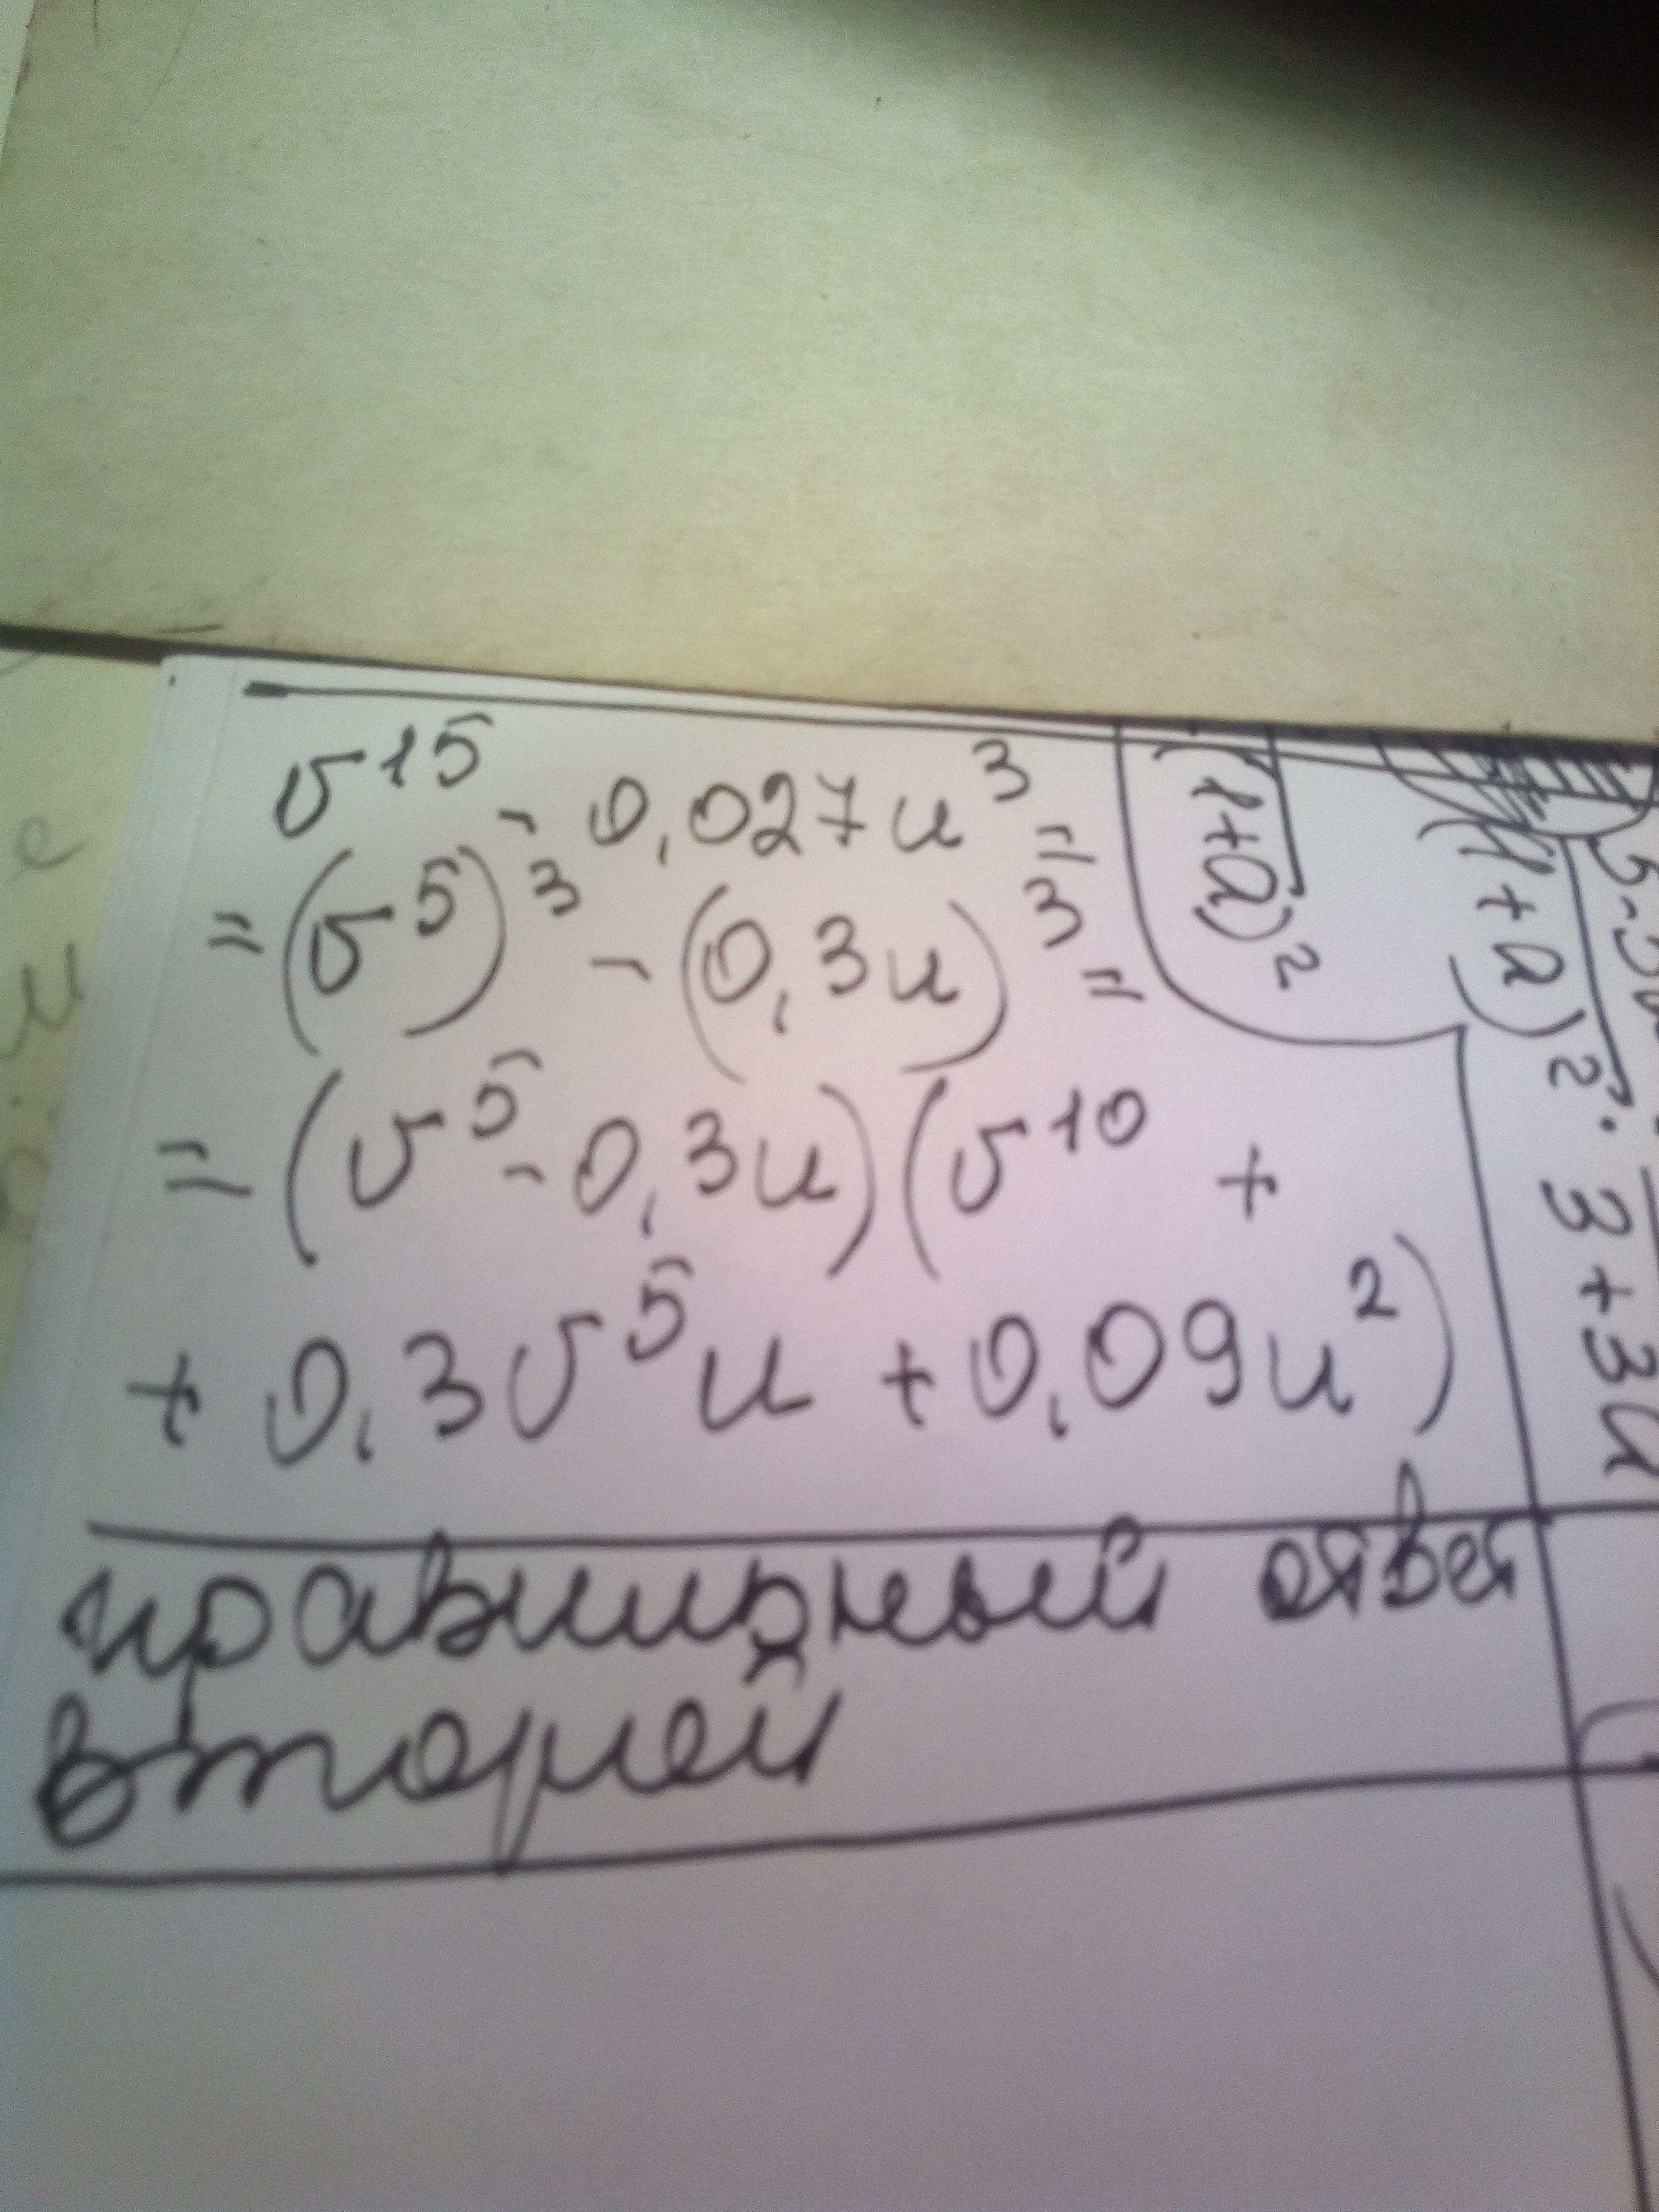 υ¹⁵ - 0,027u³ =
= (υ⁵)³ - (0,3u)³ =
= (υ⁵ - 0,3u)(υ¹⁰ +
+ 0,3υ⁵u + 0,09u²)
правильный ответ
второй
(1+a)²
(1+a)²·
3+3a